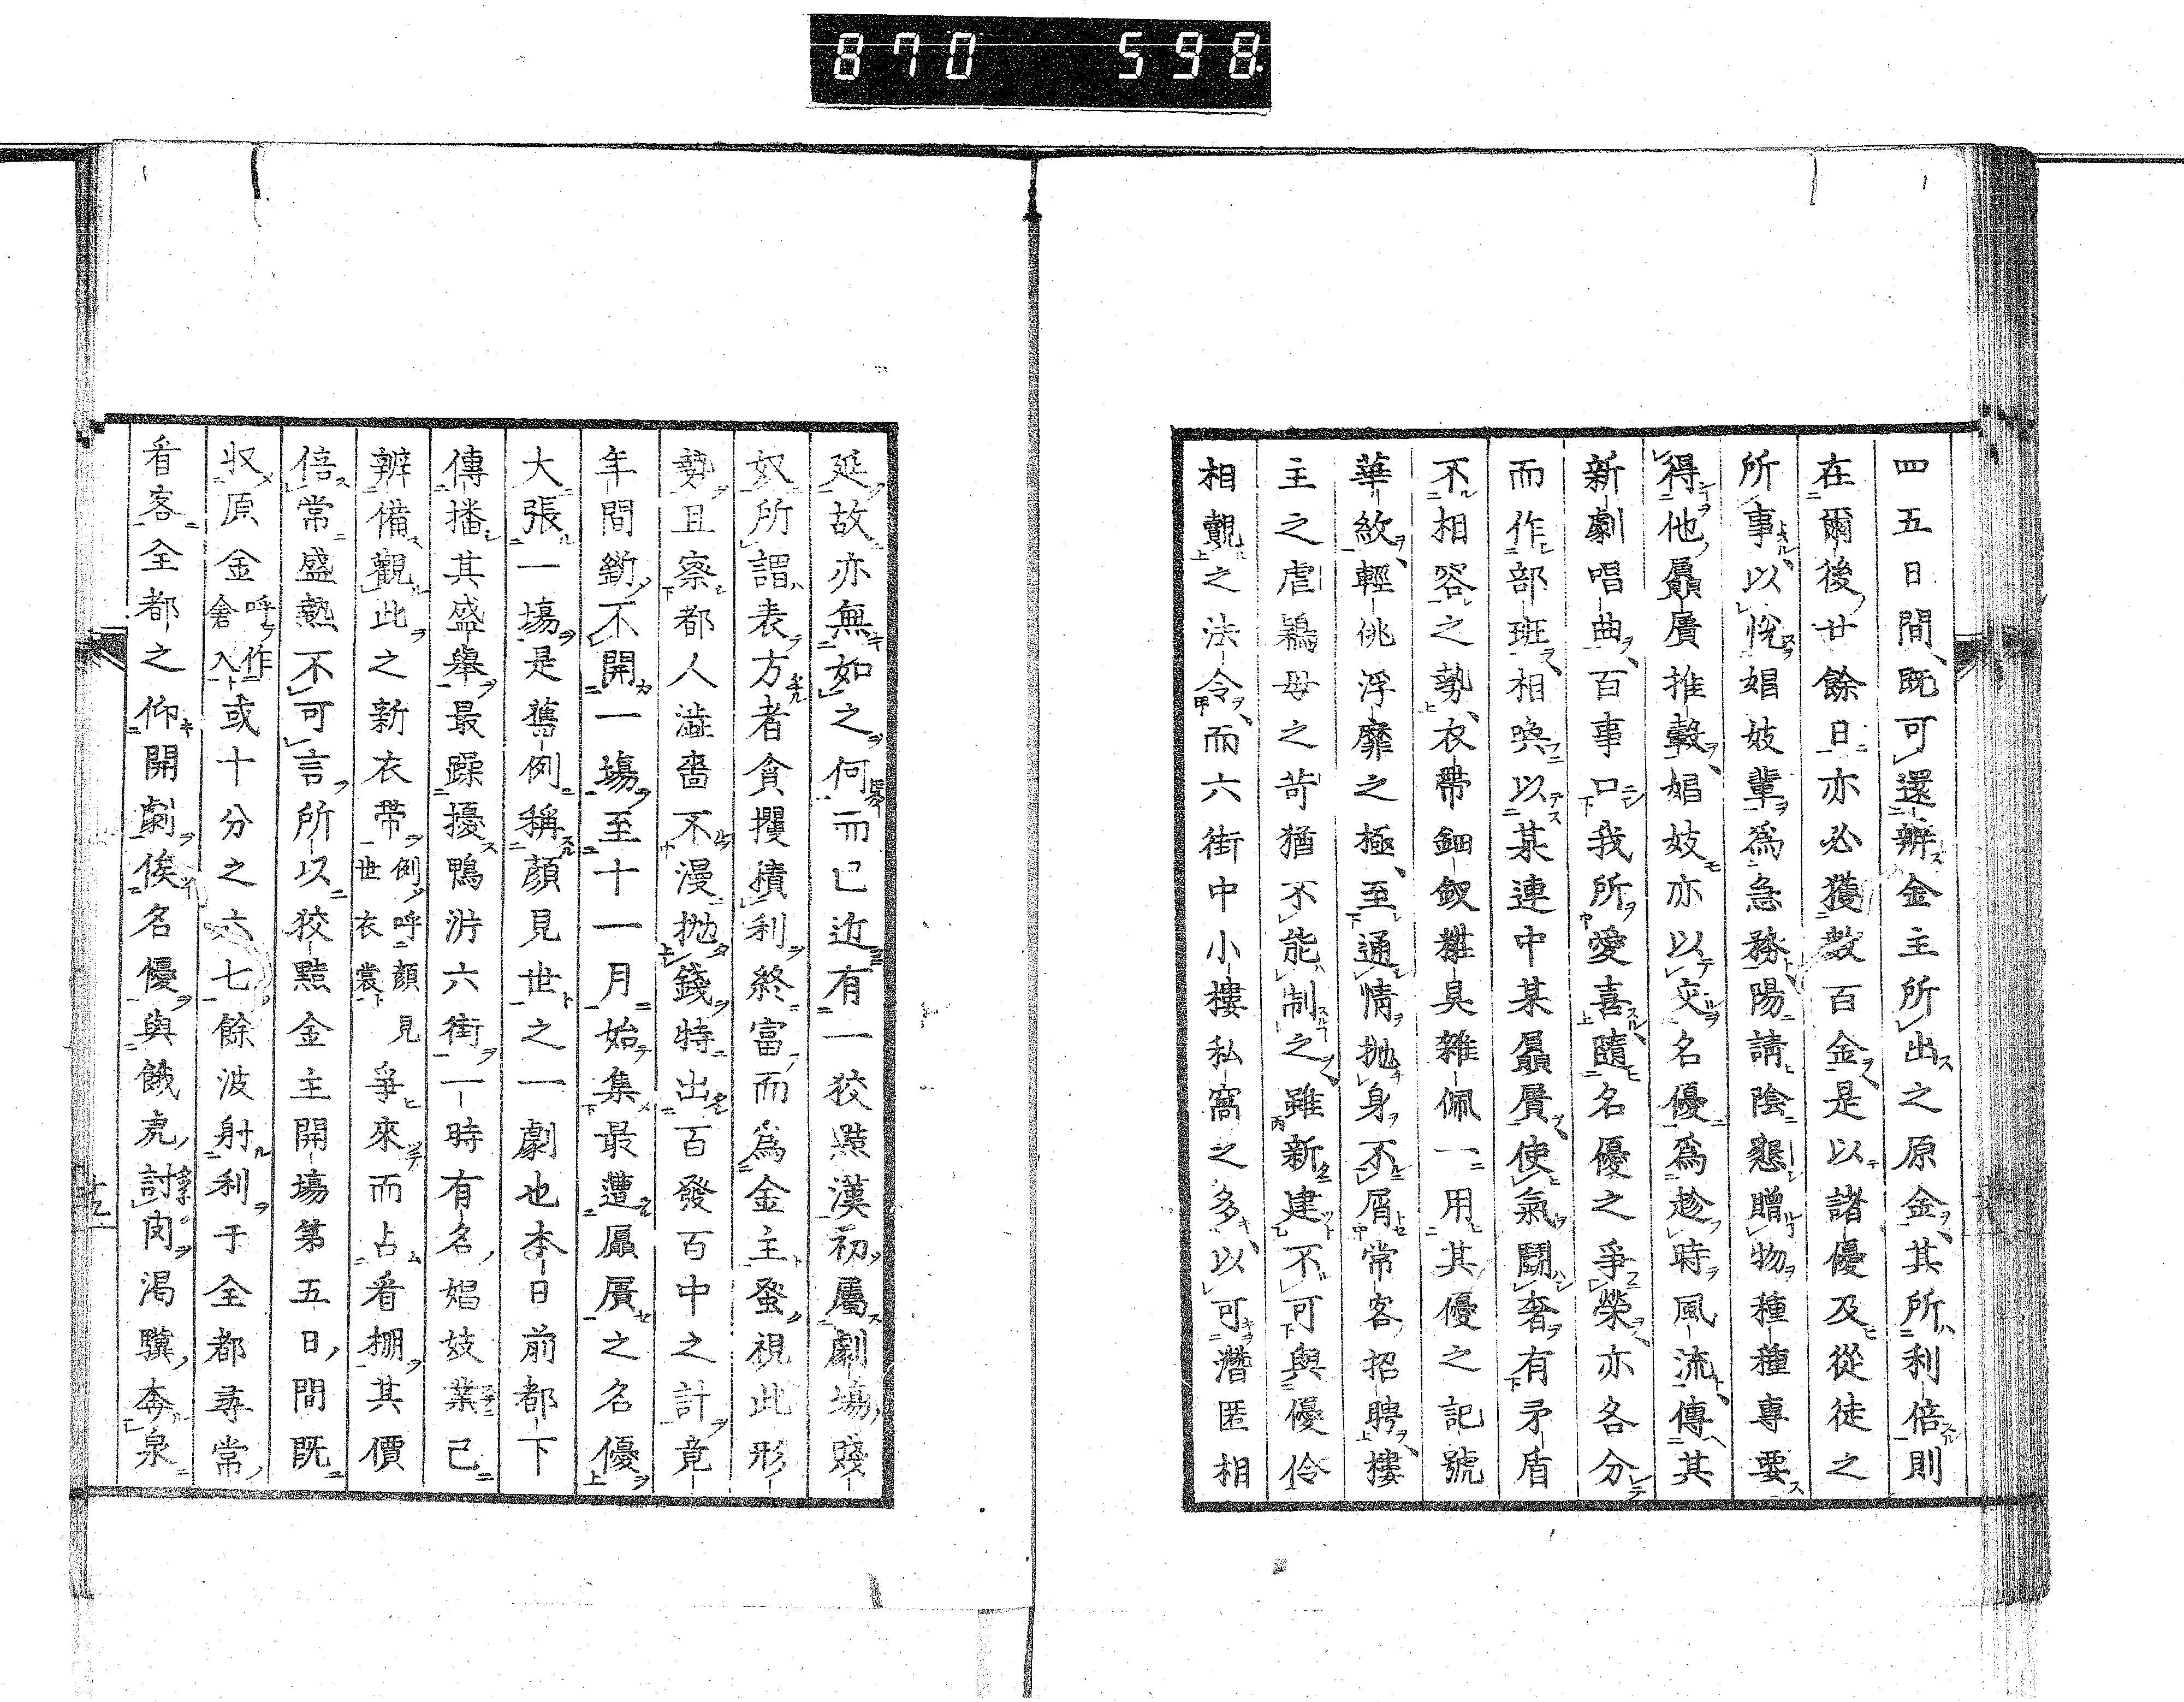 870 598
四五日間既可還辨金主所出之原金其所利倍則
在爾後廿餘日亦必獲數百金是以諸優及從徒之
所事以悅娼妓輩為急務陽請陰懇贈物種種專要
得他贔屓推轂娼妓亦以交名優為趁時風流傳其
新劇唱曲百事口我所愛喜隨名優之爭榮亦各分
而作部班相喚以某連中某贔屓使氣鬪奢有矛盾
不相容之勢衣帶鈿釵雜臭雜佩一用其優之記號
華紋輕佻浮靡之極至通情拋身不屑常客招聘樓
主之虐鴇母之苛猶不能制之雖新建不可與優伶
相覿之法令而六街中小樓私窩之多以可潛匿相
延故亦無如之何而已近有一狡黠漢初屬劇場賤
奴所謂表方者貪攫積利終富而為金主發視此形
勢且察都人澁嗇不漫拋錢特出百發百中之計竟
年間鎖不開一場至十一月始集最遭贔屓之名優
大張一場是舊例稱顏見世之一劇也本日前都下
傳播其盛舉最躁擾鴨沂六街一時有名娼妓業已
辨備觀此之新衣帶例呼顏見世衣裳爭來而占看棚其價
倍常盛熱不可言所以狡黠金主開場第五日間既
收原金呼作倉入或十分之六七餘波射利于全都尋常
看客全都之仰開劇俟名優與餓虎討肉渴驥奔泉